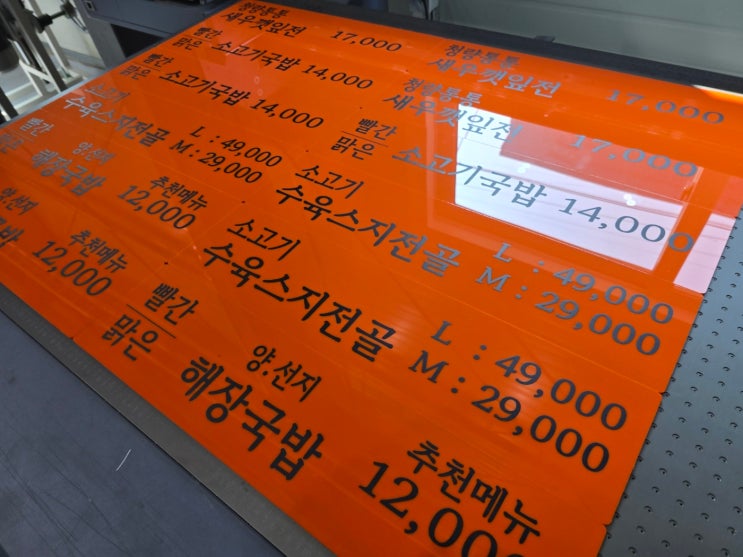 청량통통
새우깻잎전 17,000
청량통통
새우깻잎전 17,000
빨간
맑은 소고기국밥 14,000
청량통통
새우깻잎전 17,000
빨간
맑은 소고기국밥 14,000
빨간
맑은 소고기국밥 14,000
소고기
수육스지전골 L : 49,000
M : 29,000
소고기
수육스지전골 L : 49,000
M : 29,000
빨간 양.선지
해장국밥 추천메뉴
12,000
소고기
수육스지전골 L : 49,000
M : 29,000
양.선지
추천메뉴
12,000
빨간
맑은 양.선지
해장국밥 추천메뉴